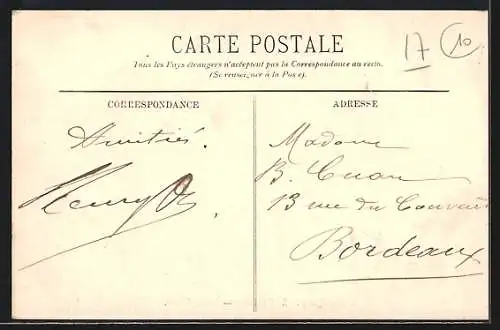 CARTE POSTALE
Tous les Pays étrangers n'acceptent pas la Correspondance au recto.
(Se renseigner à la Poste).
17 10
CORRESPONDANCE
Amitiés.
Henry
ADRESSE
Madame
B.
13 rue du Couvent
Bordeaux